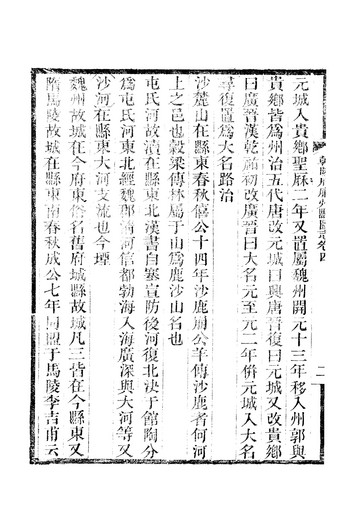 元城入貴鄉聖厤二年又置屬魏州開元十三年移入州郭與
貴鄉皆爲州治五代唐改元城曰興唐晉復曰元城又改貴鄉
曰廣晉漢乾祐初改廣晉曰大名元至元二年倂元城入大名
尋復置爲大名路治
沙麓山在縣東春秋僖公十四年沙鹿崩公羊傳沙鹿者何河
上之邑也穀梁傳林屬于山爲鹿沙山名也
屯氏河故瀆在縣東北漢書自塞宣防後河復北決于館陶分
爲屯氏河東北經魏郡淸河信都勃海入海廣深與大河等又
沙河在縣東大河支流也今堙
魏州故城在今府東舊名舊府城縣故城凡三皆在今縣東又
隋馬陵故城在縣東南春秋成公七年同盟于馬陵李吉甫云
卷四
二